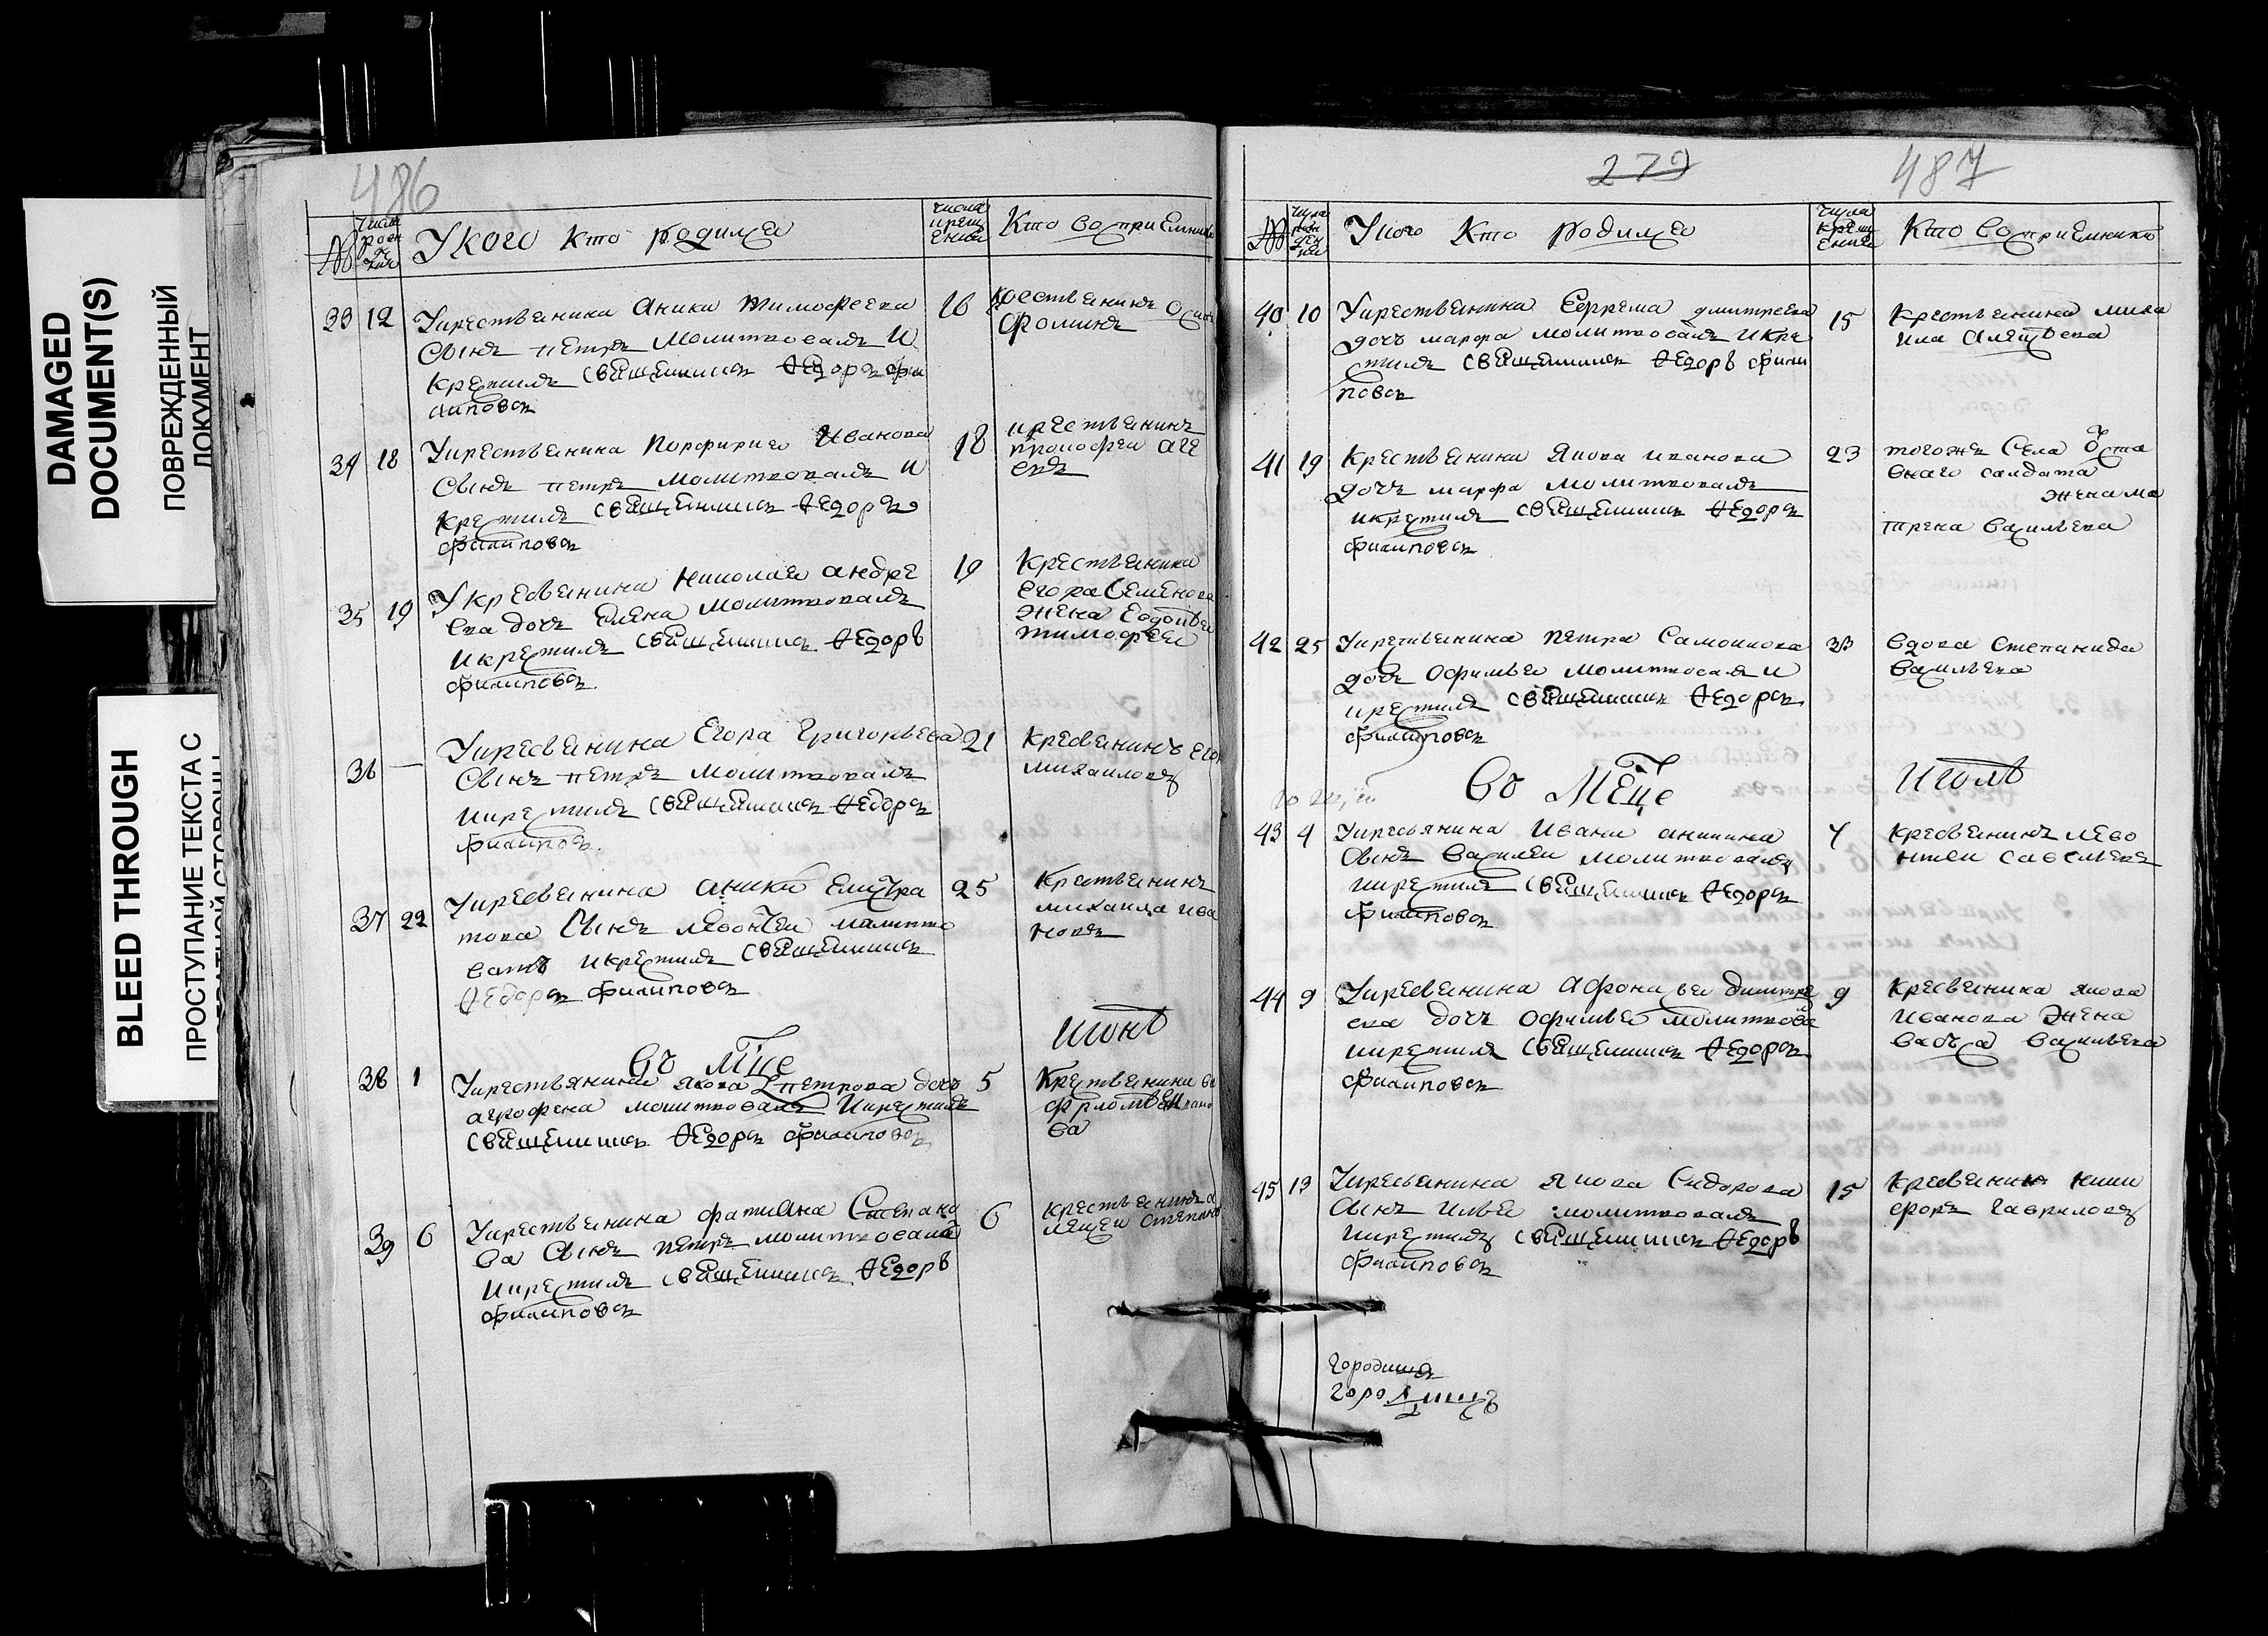 DAMAGED
DOCUMENT(S)
ПОВРЕЖДЕННЫЙ
ДОКУМЕНТ
BLEED THROUGH
ПРОСТУПАНИЕ ТЕКСТА С
486
№
числа рожденія
У кого кто родился
числа крещенія
Кто восприемники
33 12
У крестьянина Аники Тимофеева
сынъ петръ молитвовалъ и
крестилъ священникъ Ѳедоръ фи
липовъ
16
крестьянинъ
фоминъ
34 18
У крестьянина Порфирия Иванова
сынъ петръ молитвовалъ и
крестилъ священникъ Ѳедоръ
филиповъ
18
крестьянинъ
прокофеи аге
евъ
35 19
У кресьенина николая андре
ева дочь елена молитвовалъ
и крестилъ священникъ Ѳедоръ
филиповъ
19
крестьенина
егора Семенова
жена Евдотья
тимофеев
36 —
У кресьенина Егора Григорьева
сынъ петръ молитвовалъ
и крестилъ священникъ Ѳедоръ
филиповъ
21
кресьенинъ его
михаиловъ
37 22
У кресьенина аники
това сынъ левонтеи молитво
валъ и крестилъ священникъ
Ѳедоръ филиповъ
25
крестьенинъ
михаила ива
новъ
въ мце июнь
38 1
У крестьянина якова петрова дочь
агрофена молитвовалъ и крестилъ
священникъ Ѳедоръ филиповъ
5
крестьенина
ва
39 6
У крестьенина фатияна Степано
ва сынъ петръ молитвовалъ
и крестилъ священникъ Ѳедоръ
филиповъ
6
крестьенинъ а
лексеи степанов
279
487
№
числа рожденія
У кого кто родился
числа крещенія
Кто восприемники
40 10
У крестьенина Ефрема дмитреева
дочь марфа молитвовалъ и кре
стилъ священникъ Ѳедоръ фили
повъ
15
крестьенина миха
ила Алексѣева
41 19
крестьенина Якова иванова
дочь марфа молитвовалъ
и крестилъ священникъ Ѳедоръ
филиповъ
23
тогожъ Села отста
внаго салдата
жена ма
трена василева
42 25
У крестьенина петра Самоилова
дочь офимья молитвовалъ и
крестилъ священникъ Ѳедоръ
филиповъ
вдова степанида
васильева
Въ мце июль
43 4
У кресьянина Ивана аникина
сынъ василеи молитвовалъ
и крестилъ священникъ Ѳедоръ
филиповъ
кресьенинъ лево
нтеи савельевъ
44 9
У кресьенина Афонасеи дмитре
ева дочь офимья молитвова
и крестилъ священникъ Ѳедоръ
филиповъ
9
кресьенина якова
иванова жена
васильева
45 13
У кресьенина якова Сидорова
сынъ илья молитвовалъ
и крестилъ священникъ Ѳедоръ
филиповъ
15
кресьенин ники
форъ гавриловъ